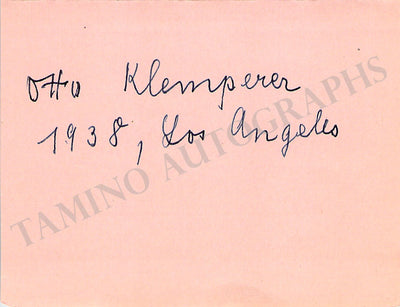 Otto Klemperer
1938, Los Angeles
TAMINO AUTOGRAPHS